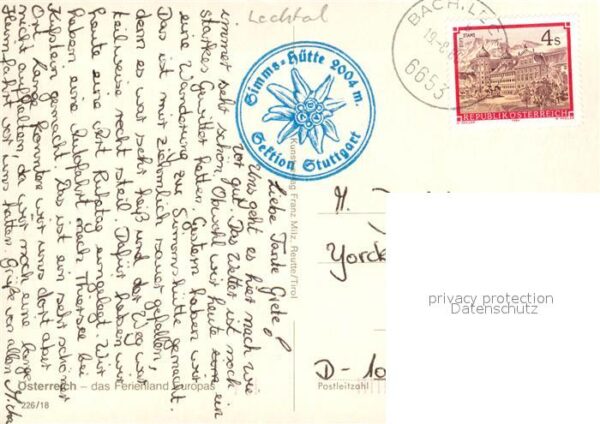 Lechtal
BACH, LE
19.-8.
6653
4s
STIFT STAMS
REPUBLIK ÖSTERREICH
Simms-Hütte 2004 m.
Sektion Stuttgart
Liebe Tante Grete!
Uns geht es hier nach wie
vor gut. Das Wetter ist noch
immer sehr schön. Obwohl wir heute ein
starkes Gewitter hatten. Gestern haben wir
eine Wanderung zur Simmshütte gemacht.
Das ist mir ziemlich sauer gefallen,
denn es war sehr heiß und der Weg war
teilweise recht steil. Dafür haben wir
heute eine Art Ruhetag eingelegt. Wir
haben eine Autofahrt nach Thiersee bei
Kufstein gemacht. Das ist ein sehr schöner
Ort. Lange konnten wir uns dort aber
nicht aufhalten, da wir noch eine lange
Heimfahrt vor uns hatten. Grüße von allen
Franz Milz, Reutte/Tirol
H.
Yorck
D-10
Postleitzahl
Österreich – das Ferienland Europas
226/18
privacy protection
Datenschutz